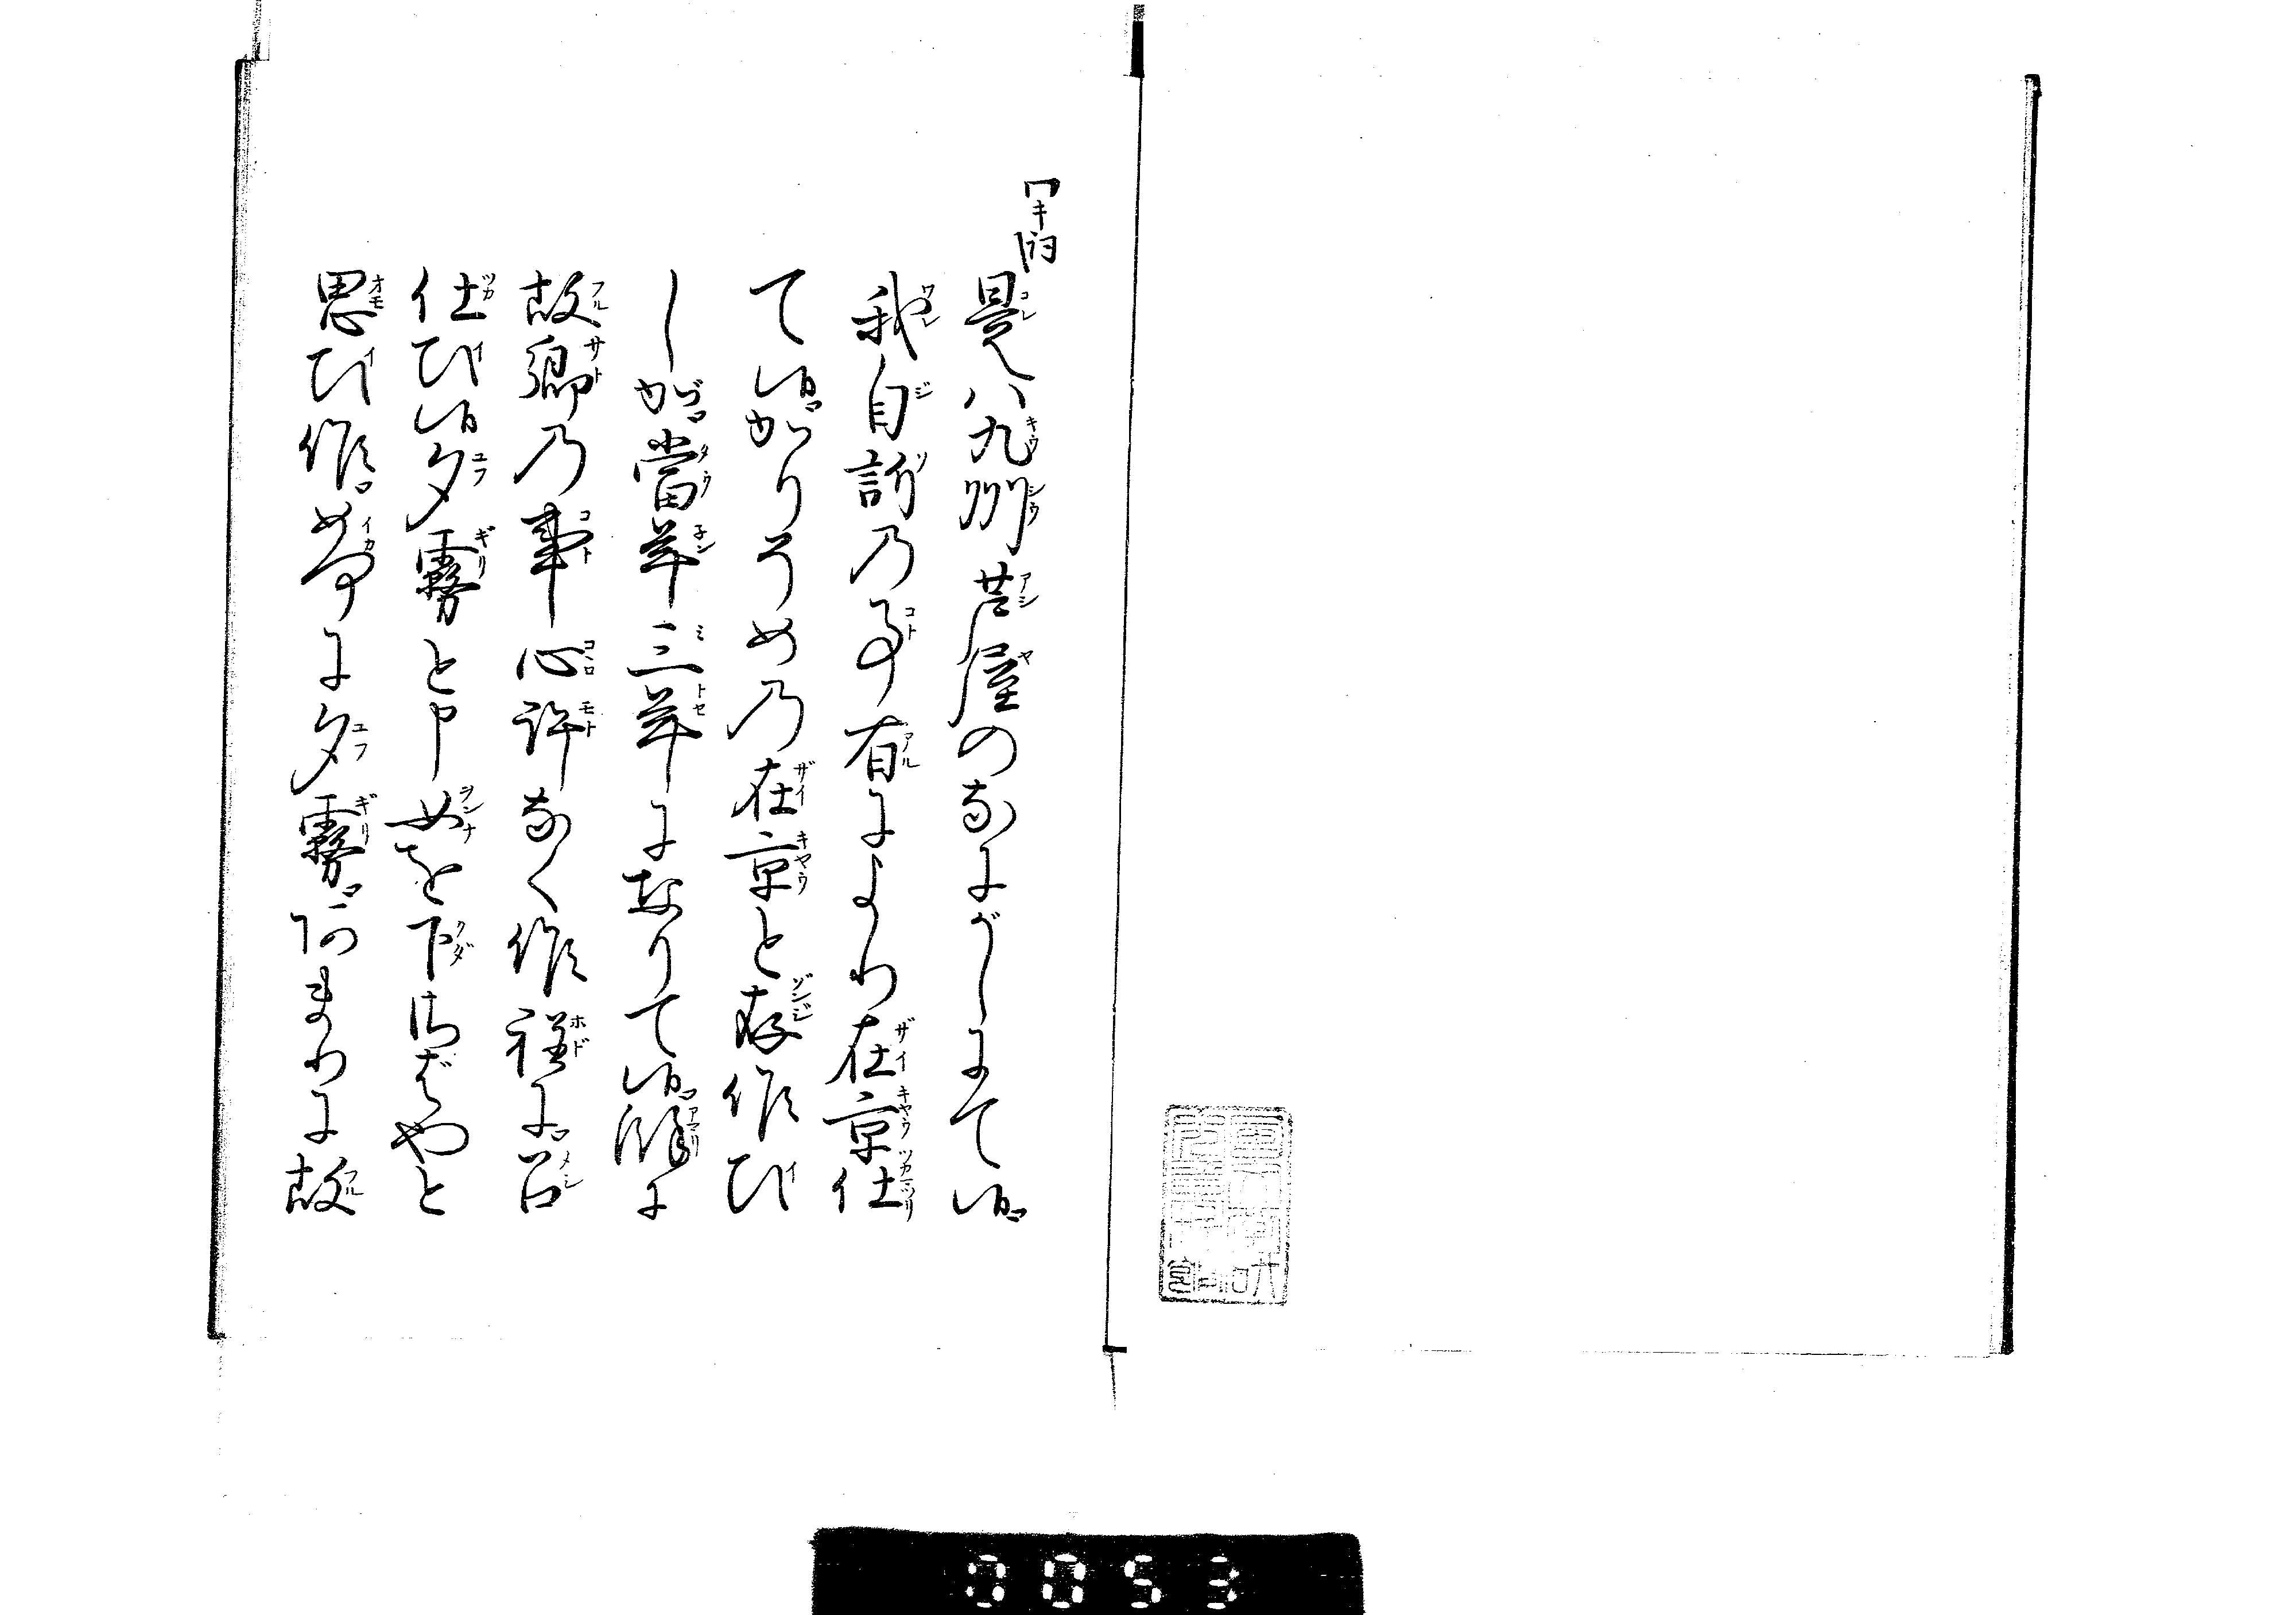 ワキ詞
是ハ九州芦屋のなにがしにて候
我自訴乃事有によわ在京仕
て候かりそめ乃在京と存作ひ
しが當年三年になりて候餘に
故郷乃事心許なく作程に召
仕ひ候夕霧と申女を下さばやと
思ひ作如何に夕霧あまわに故
0053